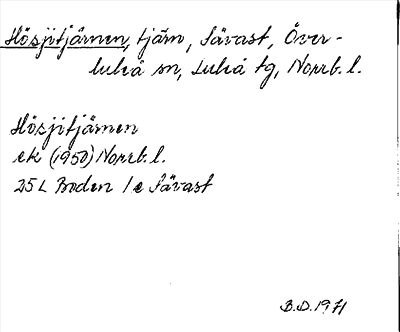 Hösjitjärnen, tjärn, Sävast, Över-
luleå sn, Luleå tg, Norrb. l.
Hösjitjärnen
ek (1950) Norrb. l.
25 L Boden 1 e Sävast
B.D. 1971